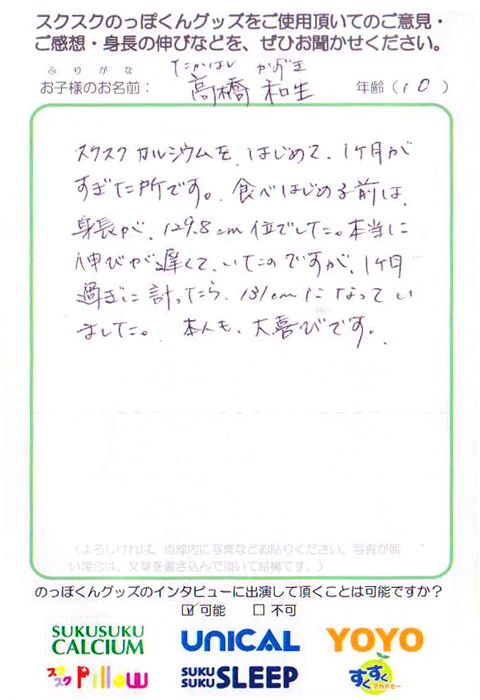 スクスクのっぽくんグッズをご使用頂いてのご意見・
ご感想・身長の伸びなどを、ぜひお聞かせください。
ふりがな たかはし かずき
お子様のお名前： 高橋 和生 年齢（10）
スクスクカルシウムを、はじめて、1ヶ月が
すぎた所です。食べはじめる前は、
身長が、129.8cm位でした。本当に
伸びが遅くて、いたのですが、1ヶ月
過ぎに計ったら、131cmになってい
ました。 本人も、大喜びです。
（よろしければ、点線内に写真などお貼りください。写真が無
い場合は、文章を書き込んで頂いて結構です。）
のっぽくんグッズのインタビューに出演して頂くことは可能ですか？
☑可能 □不可
SUKUSUKU CALCIUM UNICAL YOYO
スクスク Pillow SUKU SUKU SLEEP すくすく アカデミー